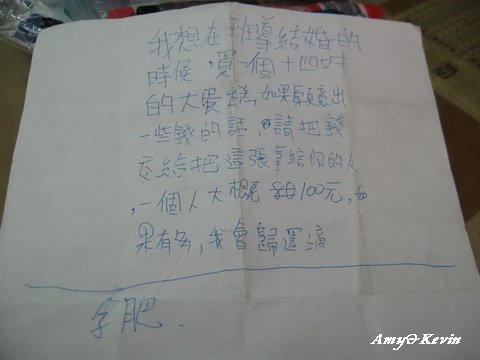 我想在班導結婚的
時候,買一個十四吋
的大蛋糕,如果願意出
一些錢的話,請把錢
交給把這張拿給你的人
,一個人大概 100元,如
果有多,我會歸還滴
肥.
Amy&Kevin